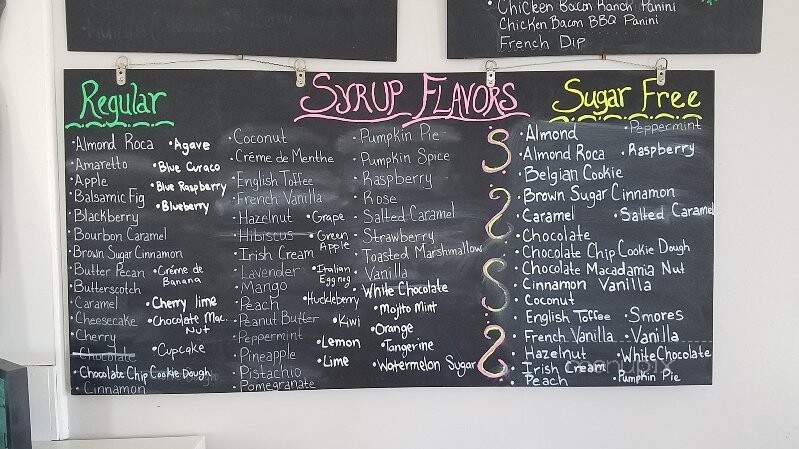 Chicken Bacon Ranch Panini
Chicken Bacon BBQ Panini
French Dip
Regular
SYRUP FLAVORS
Sugar Free
• Almond Roca
• Amaretto
• Apple
• Balsamic Fig
• Blackberry
• Bourbon Caramel
• Brown Sugar Cinnamon
• Butter Pecan
• Butterscotch
• Caramel
• Cheesecake
• Cherry
• Chocolate
• Chocolate Chip Cookie Dough
• Cinnamon
• Agave
• Blue Curaco
• Blue Raspberry
• Blueberry
• Créme de
Banana
• Cherry lime
• Chocolate Mac.
Nut
• Cupcake
• Coconut
• Créme de Menthe
• English Toffee
• French Vanilla
• Hazelnut
• Hibiscus
• Irish Cream
• Lavender
• Mango
• Peach
• Peanut Butter
• Peppermint
• Pineapple
• Pistachio
• Pomegranate
• Grape
• Green
Apple
• Italian
Eggnog
• Huckleberry
• Kiwi
• Lemon
• Lime
• Pumpkin Pie
• Pumpkin Spice
• Raspberry
• Rose
• Salted Caramel
• Strawberry
• Toasted Marshmallow
• Vanilla
White Chocolate
• Mojito Mint
• Orange
• Tangerine
• Watermelon Sugar
• Almond
• Almond Roca
• Belgian Cookie
• Brown Sugar Cinnamon
• Caramel
• Chocolate
• Chocolate Chip Cookie Dough
• Chocolate Macadamia Nut
• Cinnamon Vanilla
• Coconut
• English Toffee
• French Vanilla
• Hazelnut
• Irish Cream
• Peach
• Peppermint
• Raspberry
• Salted Caramel
• Smores
• Vanilla
• White Chocolate
• Pumpkin Pie